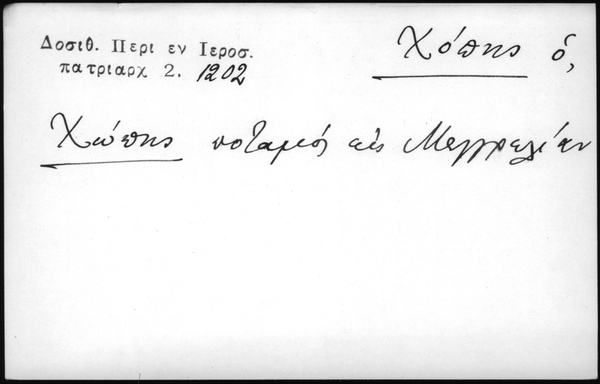 Δοσιθ. Περι εν Ιεροσ.
πατριαρχ 2. 1202
Χόπης ὁ,
Χώπης ποταμός εἰς Μεγγρελίαν